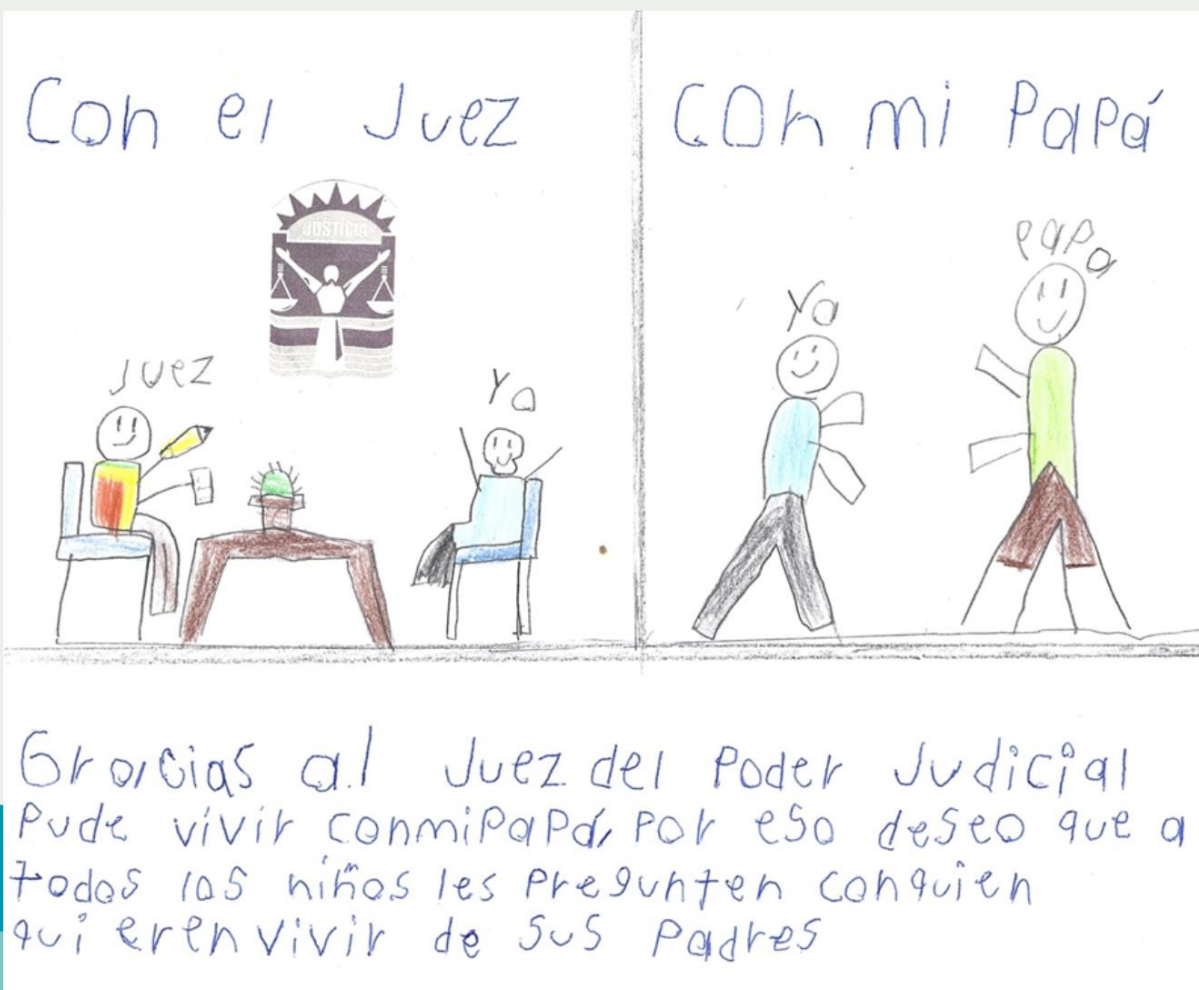 Con el Juez
JUSTICIA
Juez
Yo
Con mi Papá
Yo
papa
Gracias al Juez del Poder Judicial
Pude vivir conmiPapá, Por eso deseo que a
todos los niños les Pregunten conquien
qui eren vivir de sus Padres